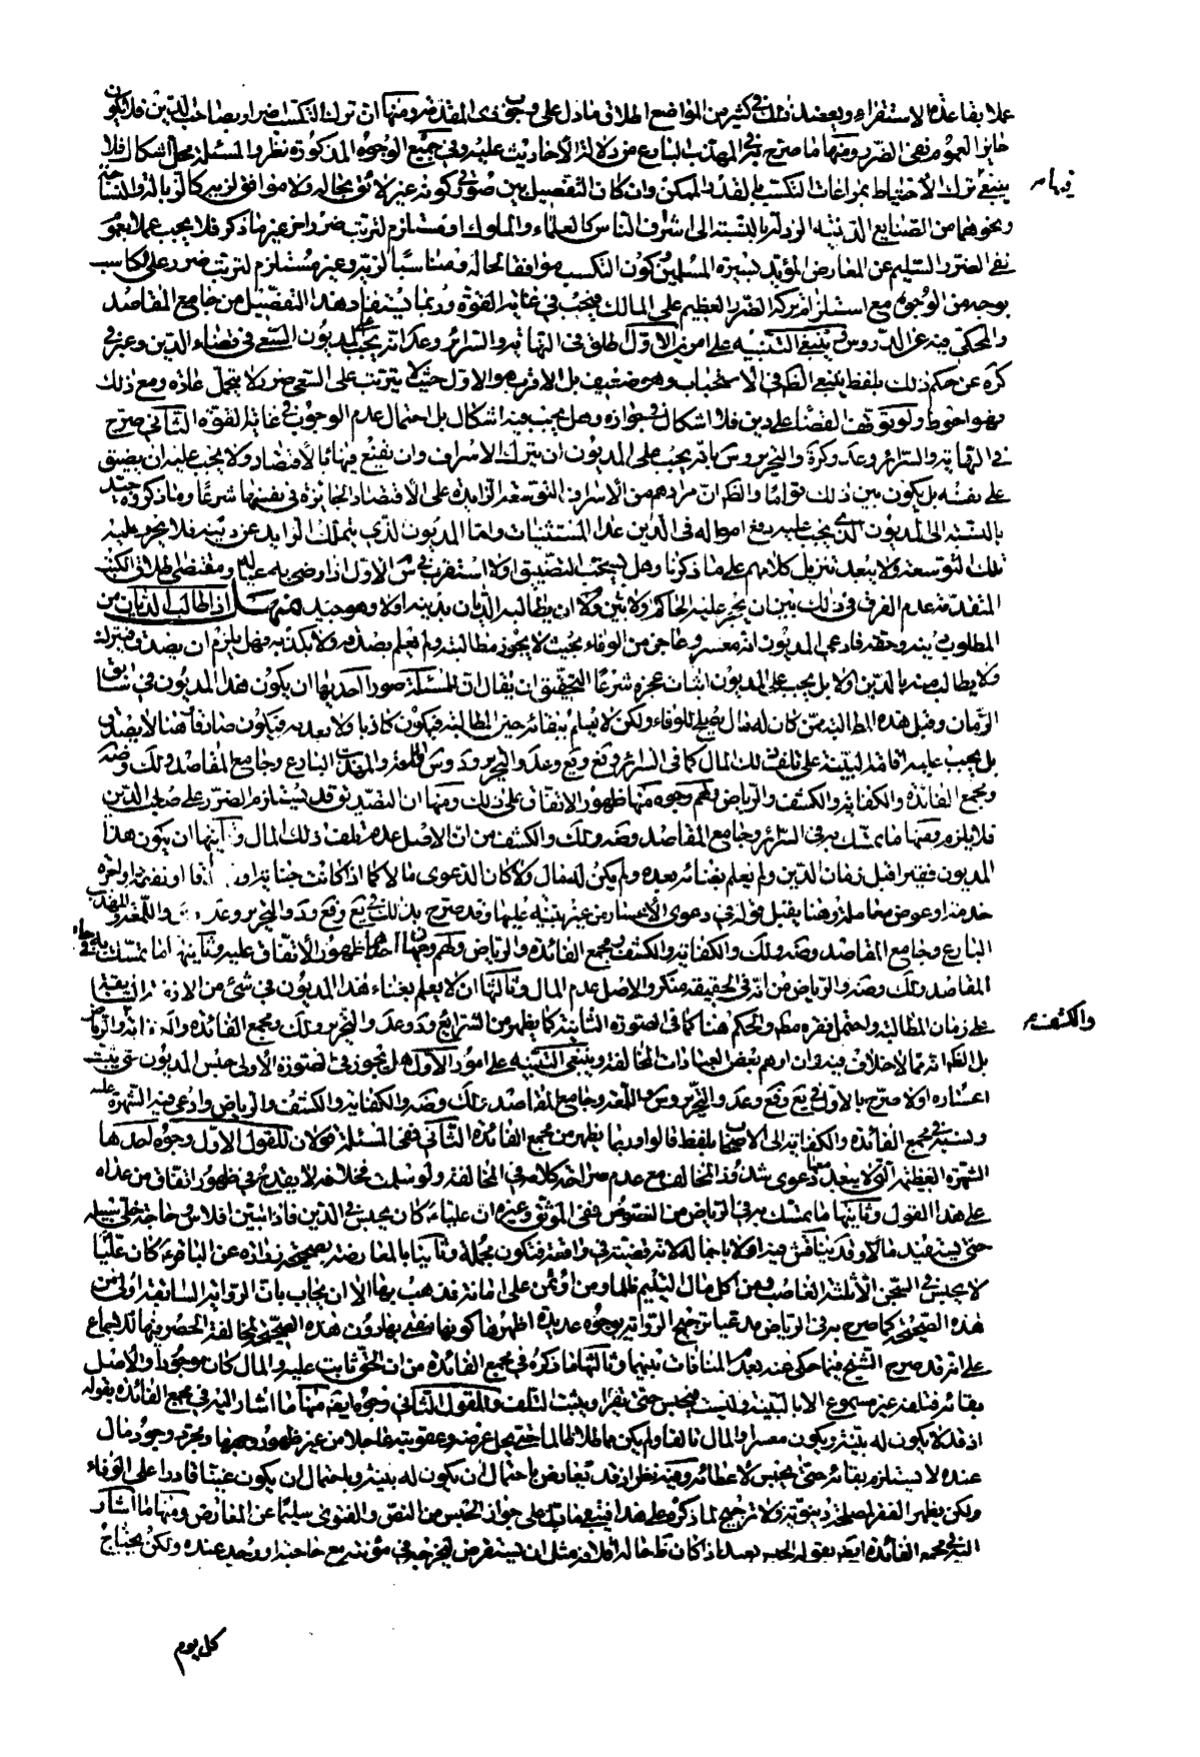 عملا بقاعدة الاستقراء ويعضد ذلك في كثير من المواضع اطلاق ما دل على وجوب المقدمة ومنها ان ترك التكسب اضرار بصاحب الدين فلا يكون
جايزا لعموم نفي الضرر ومنها ما صرح به في المهذب البارع من دلالة الأحاديث عليه وفي جميع الوجوه المذكورة نظر والمسئلة محل اشكال فلا
ينبغي ترك الاحتياط بمراعات التكسب بالقدر الممكن وان كان التفصيل بين صورتي كونه غير لائق بحاله ولا موافق لزيه كالزبالة و
ونحوهما من الصنايع الدنية الرذلة بالنسبة الى اشراف الناس كالعلماء والملوك او مستلزم لترتب ضرر اخر غير ما ذكر فلا يجب عملا بعموم
نفي الضرر السليم عن المعارض المؤيد بسيرة المسلمين وكون التكسب موافقا لحاله ومناسبا لزيه وغير مستلزم لترتب ضرر على الكاسب
بوجه من الوجوه مع استلزام تركه الضرر العظيم على المالك فيجب في غاية القوة وربما يستفاد هذا التفصيل من جامع المقاصد
والمحكي فيه عن الدروس وينبغي التنبيه على امور الاول اطلق في النهاية والسرائر وعد انه يجب على المديون السعي في قضاء الدين وعبر في
كره عن حكم ذلك بلفظ ينبغي الظ في الاستحباب وهو ضعيف بل الاقرب هو الاول حيث لا يترتب على السعي ضرر لا يتحمل عادة ومع ذلك
فهو احوط ولو توقف القضاء على دين فلا اشكال في جوازه وهل يجب فيه اشكال بل احتمال عدم الوجوب في غاية القوة الثاني صرح
في النهاية والسرائر وعد وكره والتحرير وس بانه يجب على المديون ان يترك الاسراف وان يقنع فيها بالاقتصاد ولا يجب عليه ان يضيق
على نفسه بل يكون بين ذلك قواما والظ ان مرادهم من الاسراف التوسعة الزايدة على الاقتصاد الجايزة في نفسها شرعا وما ذكروه جيد
بالنسبة الى المديون الذي يجب عليه دفع امواله في الدين عدا المستثنيات واما المديون الذي يتملك الزايد عن دينه فلا يحرم عليه
تلك التوسعة ولا يبعد تنزيل كلامهم على ما ذكرنا وهل يستحب التضييق او لا استقرب في س الاول اذا رضي به عياله ومقتضى اطلاق الكتب
المتقدمة عدم الفرق في ذلك بين ان يحجر عليه الحاكم او لا وبين ان يطالبه الديان بدينه او لا وهو جيد منهل اذا طالب الديان من
المطلوب بدينه وحقه فادعى المديون انه معسر وعاجز من الوفاء بحيث لا يجوز مطالبته ولم يعلم بصدقه ولا بكذبه فهل يلزم ان يصدق بقوله
ولا يطالب منه بالدين او لا بل يجب على المديون اثبات عجزه شرعا التحقيق ان يقال ان للمسئلة صورا احديها ان يكون هذا المديون في سابق
الزمان وقبل هذه المطالبة ممن كان له مال يصلح للوفاء ولكن لا يعلم ببقائه حين المطالبة فيكون كاذبا ولا بعدمه فيكون صادقا فهنا لا يصدق
بل يجب عليه اقامة البينة على تلف ذلك المال كما في السرائر ويع وفع وعد والتحرير ود وس واللمعة والمهذب البارع وجامع المقاصد ولك وضه
ومجمع الفائدة والكفاية والكشف والرياض ولهم وجوه منها ظهور الاتفاق على ذلك ومنها ان التصديق قد يستلزم الضرر على صاحب الدين
فلا يلزم ومنها ما تمسك به في السرائر وجامع المقاصد وضه ولك والكشف من ان الاصل عدم تلف ذلك المال وثانيها ان يكون هذا
المديون فقيرا قبل زمان الدين ولم يعلم بغنائه بعده ولم يكن له مال ولا كان الدعوى مالا كما اذا كانت جناية او نفقة او اجرة
خدمة او عوض معاملة وهنا يقبل قوله في دعوى الاعسار من غير بينة عليها وقد صرح بذلك في يع وفع ود والتحرير وعد واللمعة والمهذب
البارع وجامع المقاصد وضه ولك والكفاية والكشف ومجمع الفائدة والرياض ولهم وجهان احدهما ظهور الاتفاق عليه وثانيهما ما تمسك به في جامع
المقاصد ولك وضه والرياض من انه في الحقيقة منكر والاصل عدم المال وثالثها ان لا يعلم بغناء هذا المديون في شئ من الازمنة السابقة
على زمان المطالبة واحتمل فقره مط والحكم هنا كما في الصورة الثانية كما يظهر من الشرايع ود وعد والتحرير ولك ومجمع الفائدة والرياض
بل الظ انه مما لا خلاف فيه وان اوهم بعض العبادات المخالفة وينبغي التنبيه على امور الاول هل يجوز في الصورة الاولى حبس المديون حتى يثبت
اعساره او لا صرح بالاول في يع وفع وعد والتحرير وس واللمعة وجامع المقاصد ولك وضه والكفاية والكشف والرياض وادعى فيه الشهرة عليه
ونسبه في مجمع الفائدة والكفاية الى الاصحاب بلفظ قالوا وربما يظهر من مجمع الفائدة الثاني ففي المسئلة قولان للقول الاول وجوه احدها
الشهرة العظيمة التي لا يبعد معها دعوى شذوذ المخالف مع عدم صراحة كلامه في المخالفة ولو سلمت فخلافه لا يقدح في ظهور اتفاق من عداه
على هذا القول وثانيها ما تمسك به في الرياض من النصوص ففي الموثق وغيره ان عليا ع كان يحبس في الدين فاذا تبين افلاس وحاجة خلى سبيله
حتى يستفيد مالا وقد يناقش فيه اولا باجماله لانه قضية في واقعة فتكون مجملة وثانيا بالمعارضة بصحيحة زرارة عن الباقر ع كان علي ع
لا يحبس في السجن الا ثلثة الغاصب ومن اكل مال اليتيم ظلما ومن اؤتمن على امانة فذهب بها الا ان يجاب بان الرواية السابقة اولى من
هذه الصحيحة كما صرح به في الرياض مدعيا ترجيح الرواية بوجوه عديدة اظهرها كونها مفتى بها دون هذه الصحيحة لمخالفة الحصر فيها للاجماع
على انه قد صرح الشيخ فيما حكى عنه بعدم المنافات بينهما وثالثها ما ذكره في مجمع الفائدة من ان الحق ثابت عليه والمال كان موجودا والاصل
بقائه فتلفه غير مسموع الا بالبينة وليست فيحبس حتى يقر او يثبت التلف وللقول الثاني وجوه ايضا منها ما اشار اليه في مجمع الفائدة بقوله
اذ قد لا يكون له بينة ويكون معسرا والمال تالفا ولم يكن مماطلا ظالما حتى يحل عرضه وعقوبته عاجلا من غير ظهور وجهها ومجرد وجود مال
عنده لا يستلزم بقائه حتى يحبس لاعطائه وفيه نظر اذ قد تعارض باحتمال ان يكون له بينة وباحتمال ان يكون غنيا قادرا على الوفاء
ولكن يظهر الفقر لمصلحة دنيوية ولا ترجيح لما ذكره على هذا فيبقى ما دل على جواز الحبس من النص والفتوى سليما عن المعارض ومنها ما اشار
اليه في مجمع الفائدة ايضا بقوله الحبس بعيد اذا كان ظاهر حاله افلاسه مثل ان يستقرض ليخرجه في مؤنته مع حاجته او وجد عنده ولكن يحتاج
فيها م
والكشف م
كل يوم